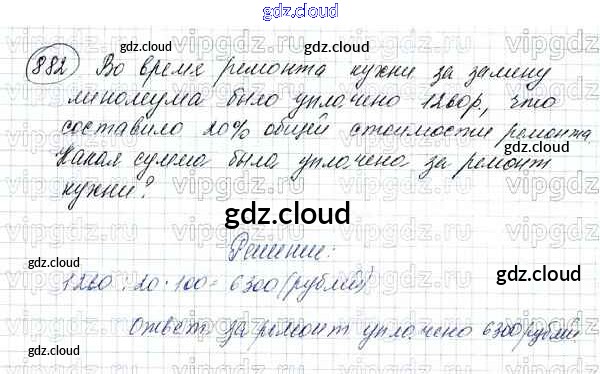 gdz.cloud
882 Во время ремонта кухни за замену
линолеума было уплачено 1260р, что
составило 20% общей стоимости ремонта.
Какая сумма была уплачена за ремонт
кухни?
gdz.cloud
Решение:
1260 : 20 · 100 = 6300 (рублей)
Ответ за ремонт уплачено 6300 рублей.
gdz.cloud
gdz.cloud
gdz.cloud
gdz.cloud
gdz.cloud
gdz.cloud
gdz.cloud